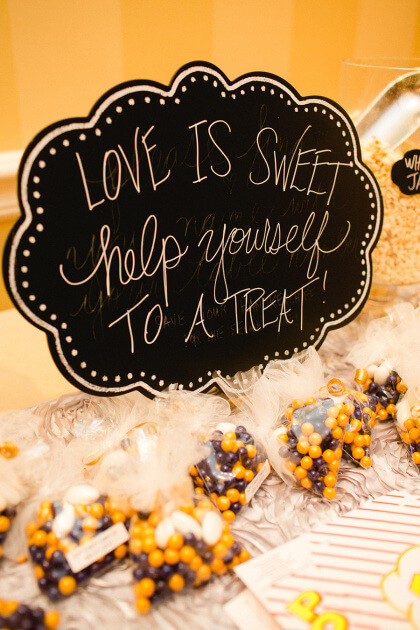 LOVE IS SWEET
help yourself
TO A TREAT!